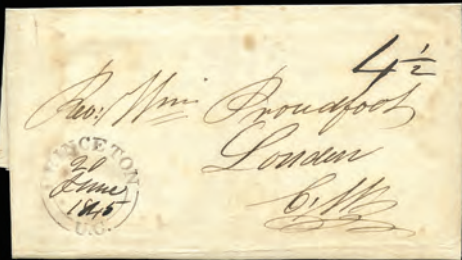 4½
Rev: Wm Proudfoot
London
C.W.
PRINCETON
20
June
1845
U.C.